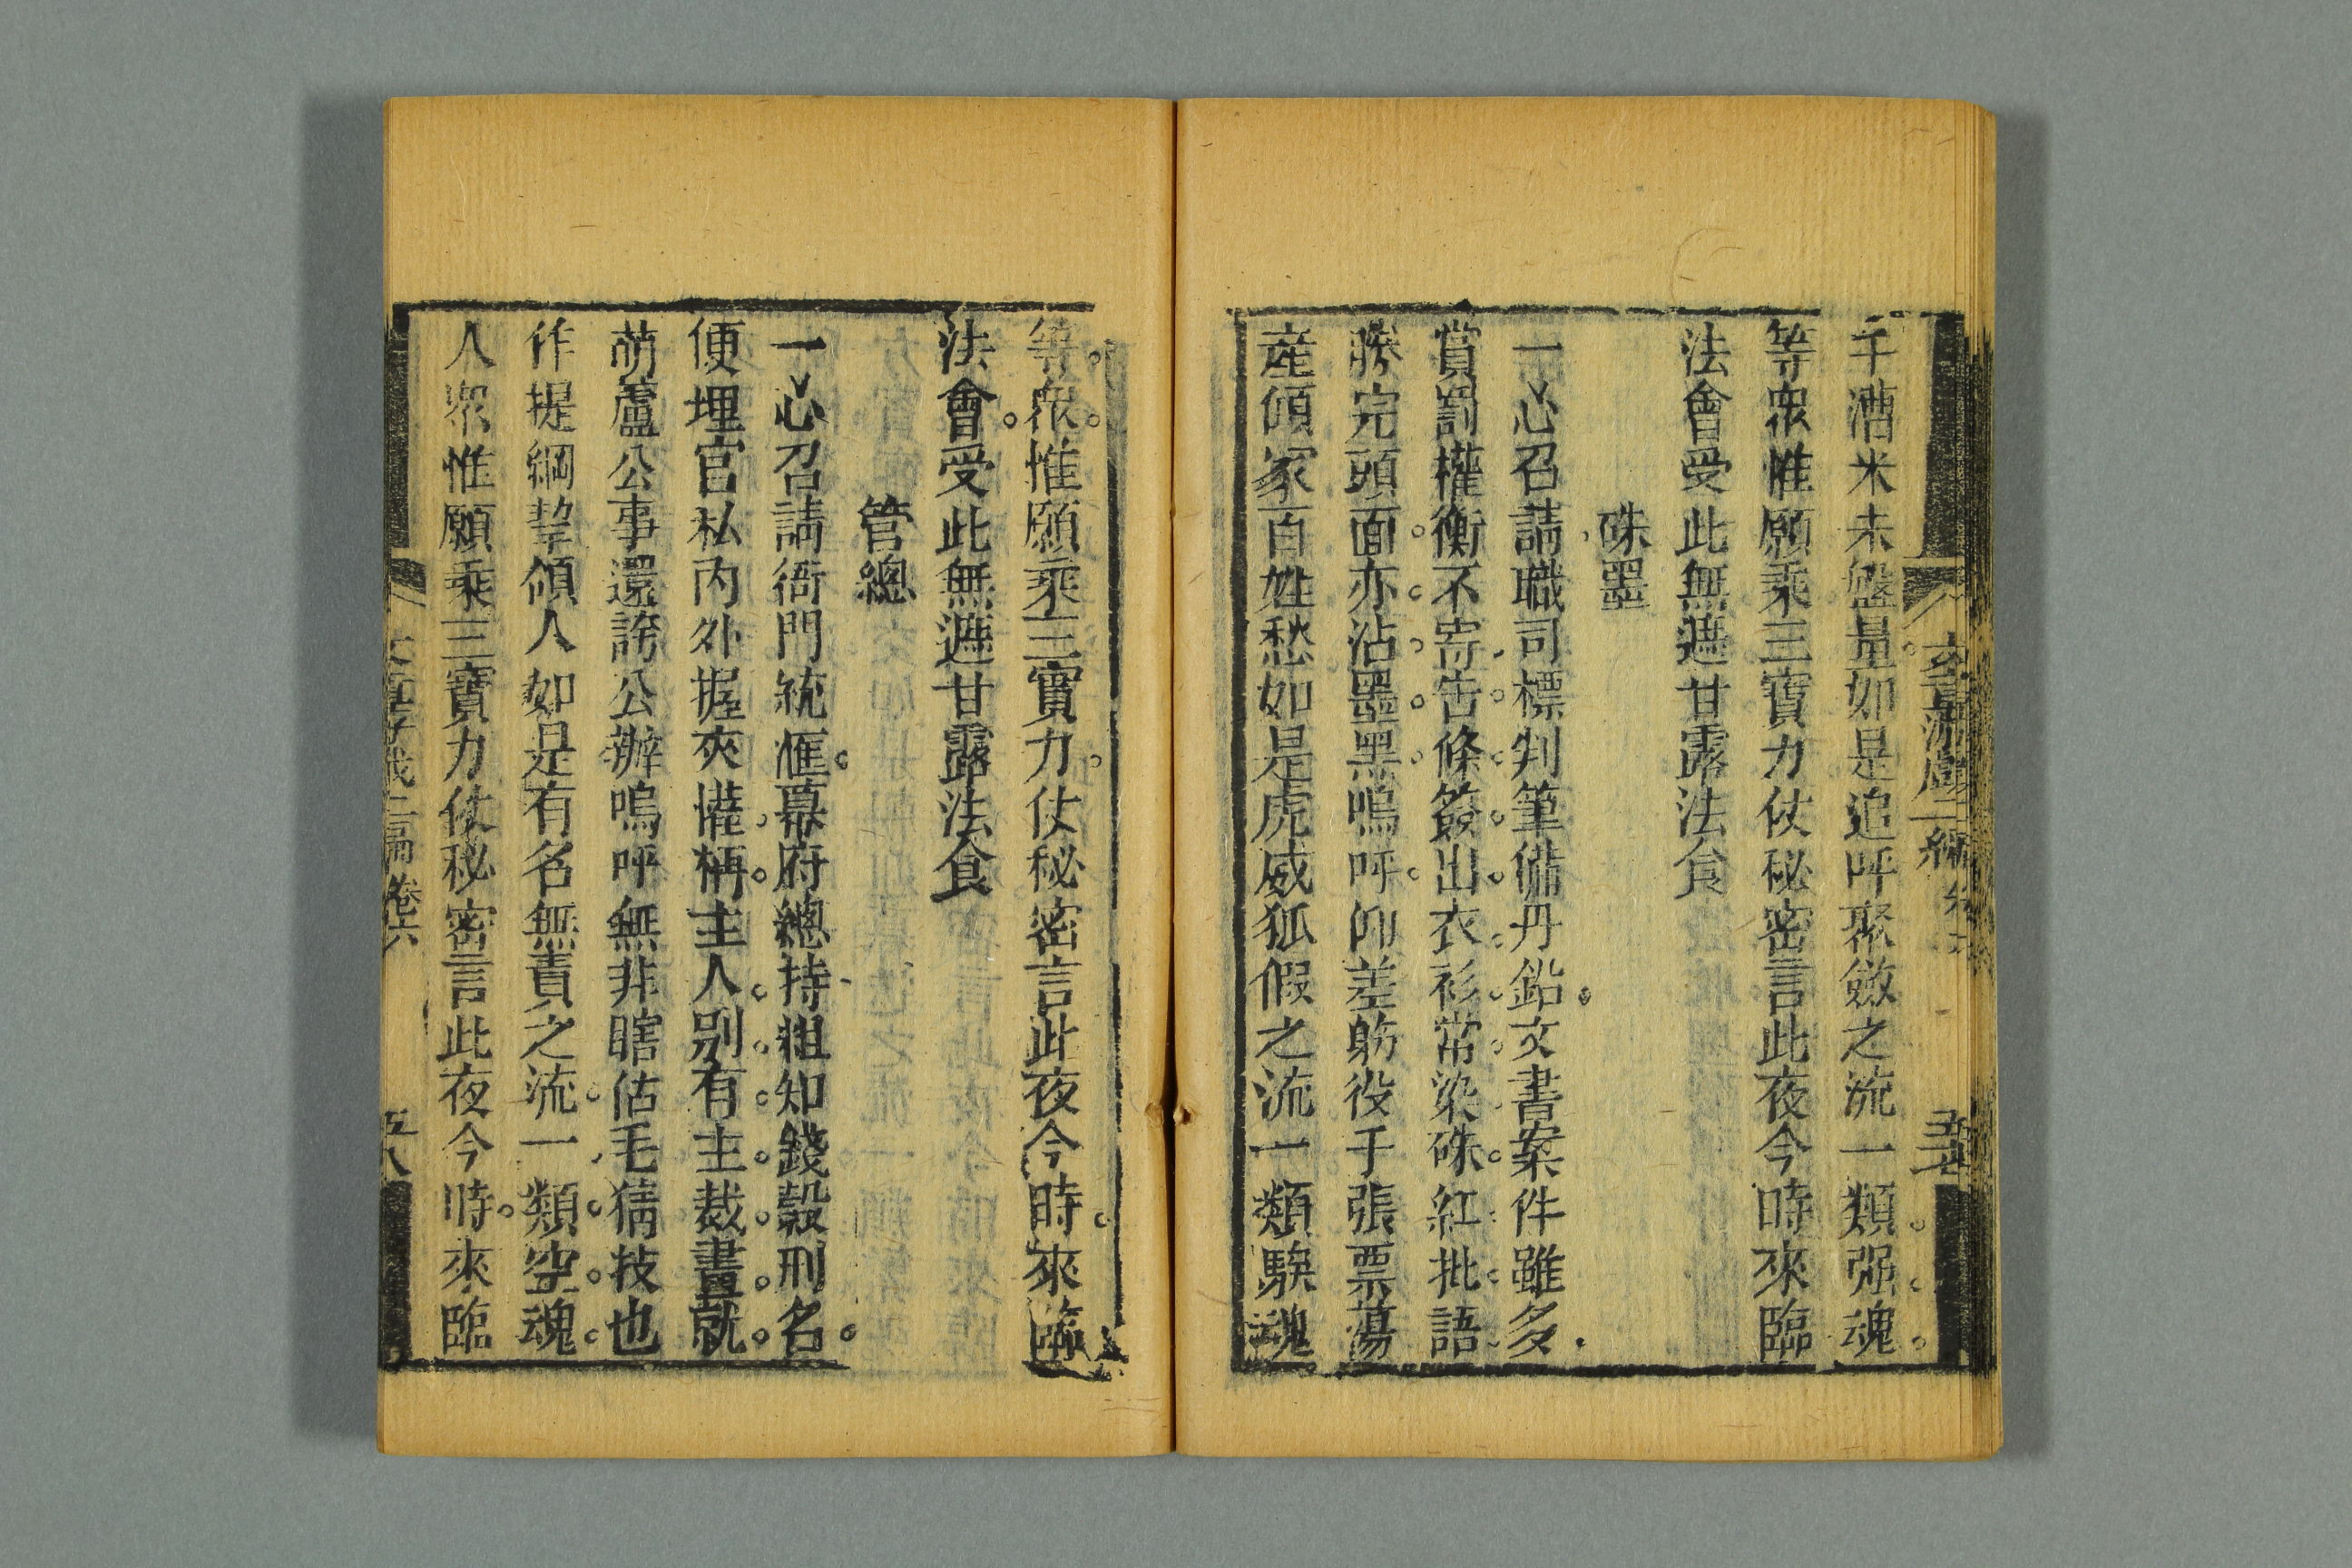 千漕米未盤量如是追呼聚斂之流一類强魂
等衆惟願乘三寶力仗秘密言此夜今時來臨
法會受此無遮甘露法食
硃墨
一心召請職司標判筆備丹鉛文書案件雖多
賞罰權衡不寄告條簽出衣衫常染硃紅批語
謄完頭面亦沾墨黑嗚呼仰差躬役手張票蕩
産傾家百姓愁如是虎威狐假之流一類騃魂
等衆惟願乘三寶力仗秘密言此夜今時來臨
法會受此無遮甘露法食
管總
一心召請衙門統匯幕府總持粗知錢穀刑名
便埋官私内外握夾權柄主人别有主裁晝就
葫蘆公事還誇公辦嗚呼無非瞎估毛猜技也
作提綱挈領人如是有名無責之流一類空魂
人衆惟願乘三寶力仗秘密言此夜今時來臨
二編 卷六
五八